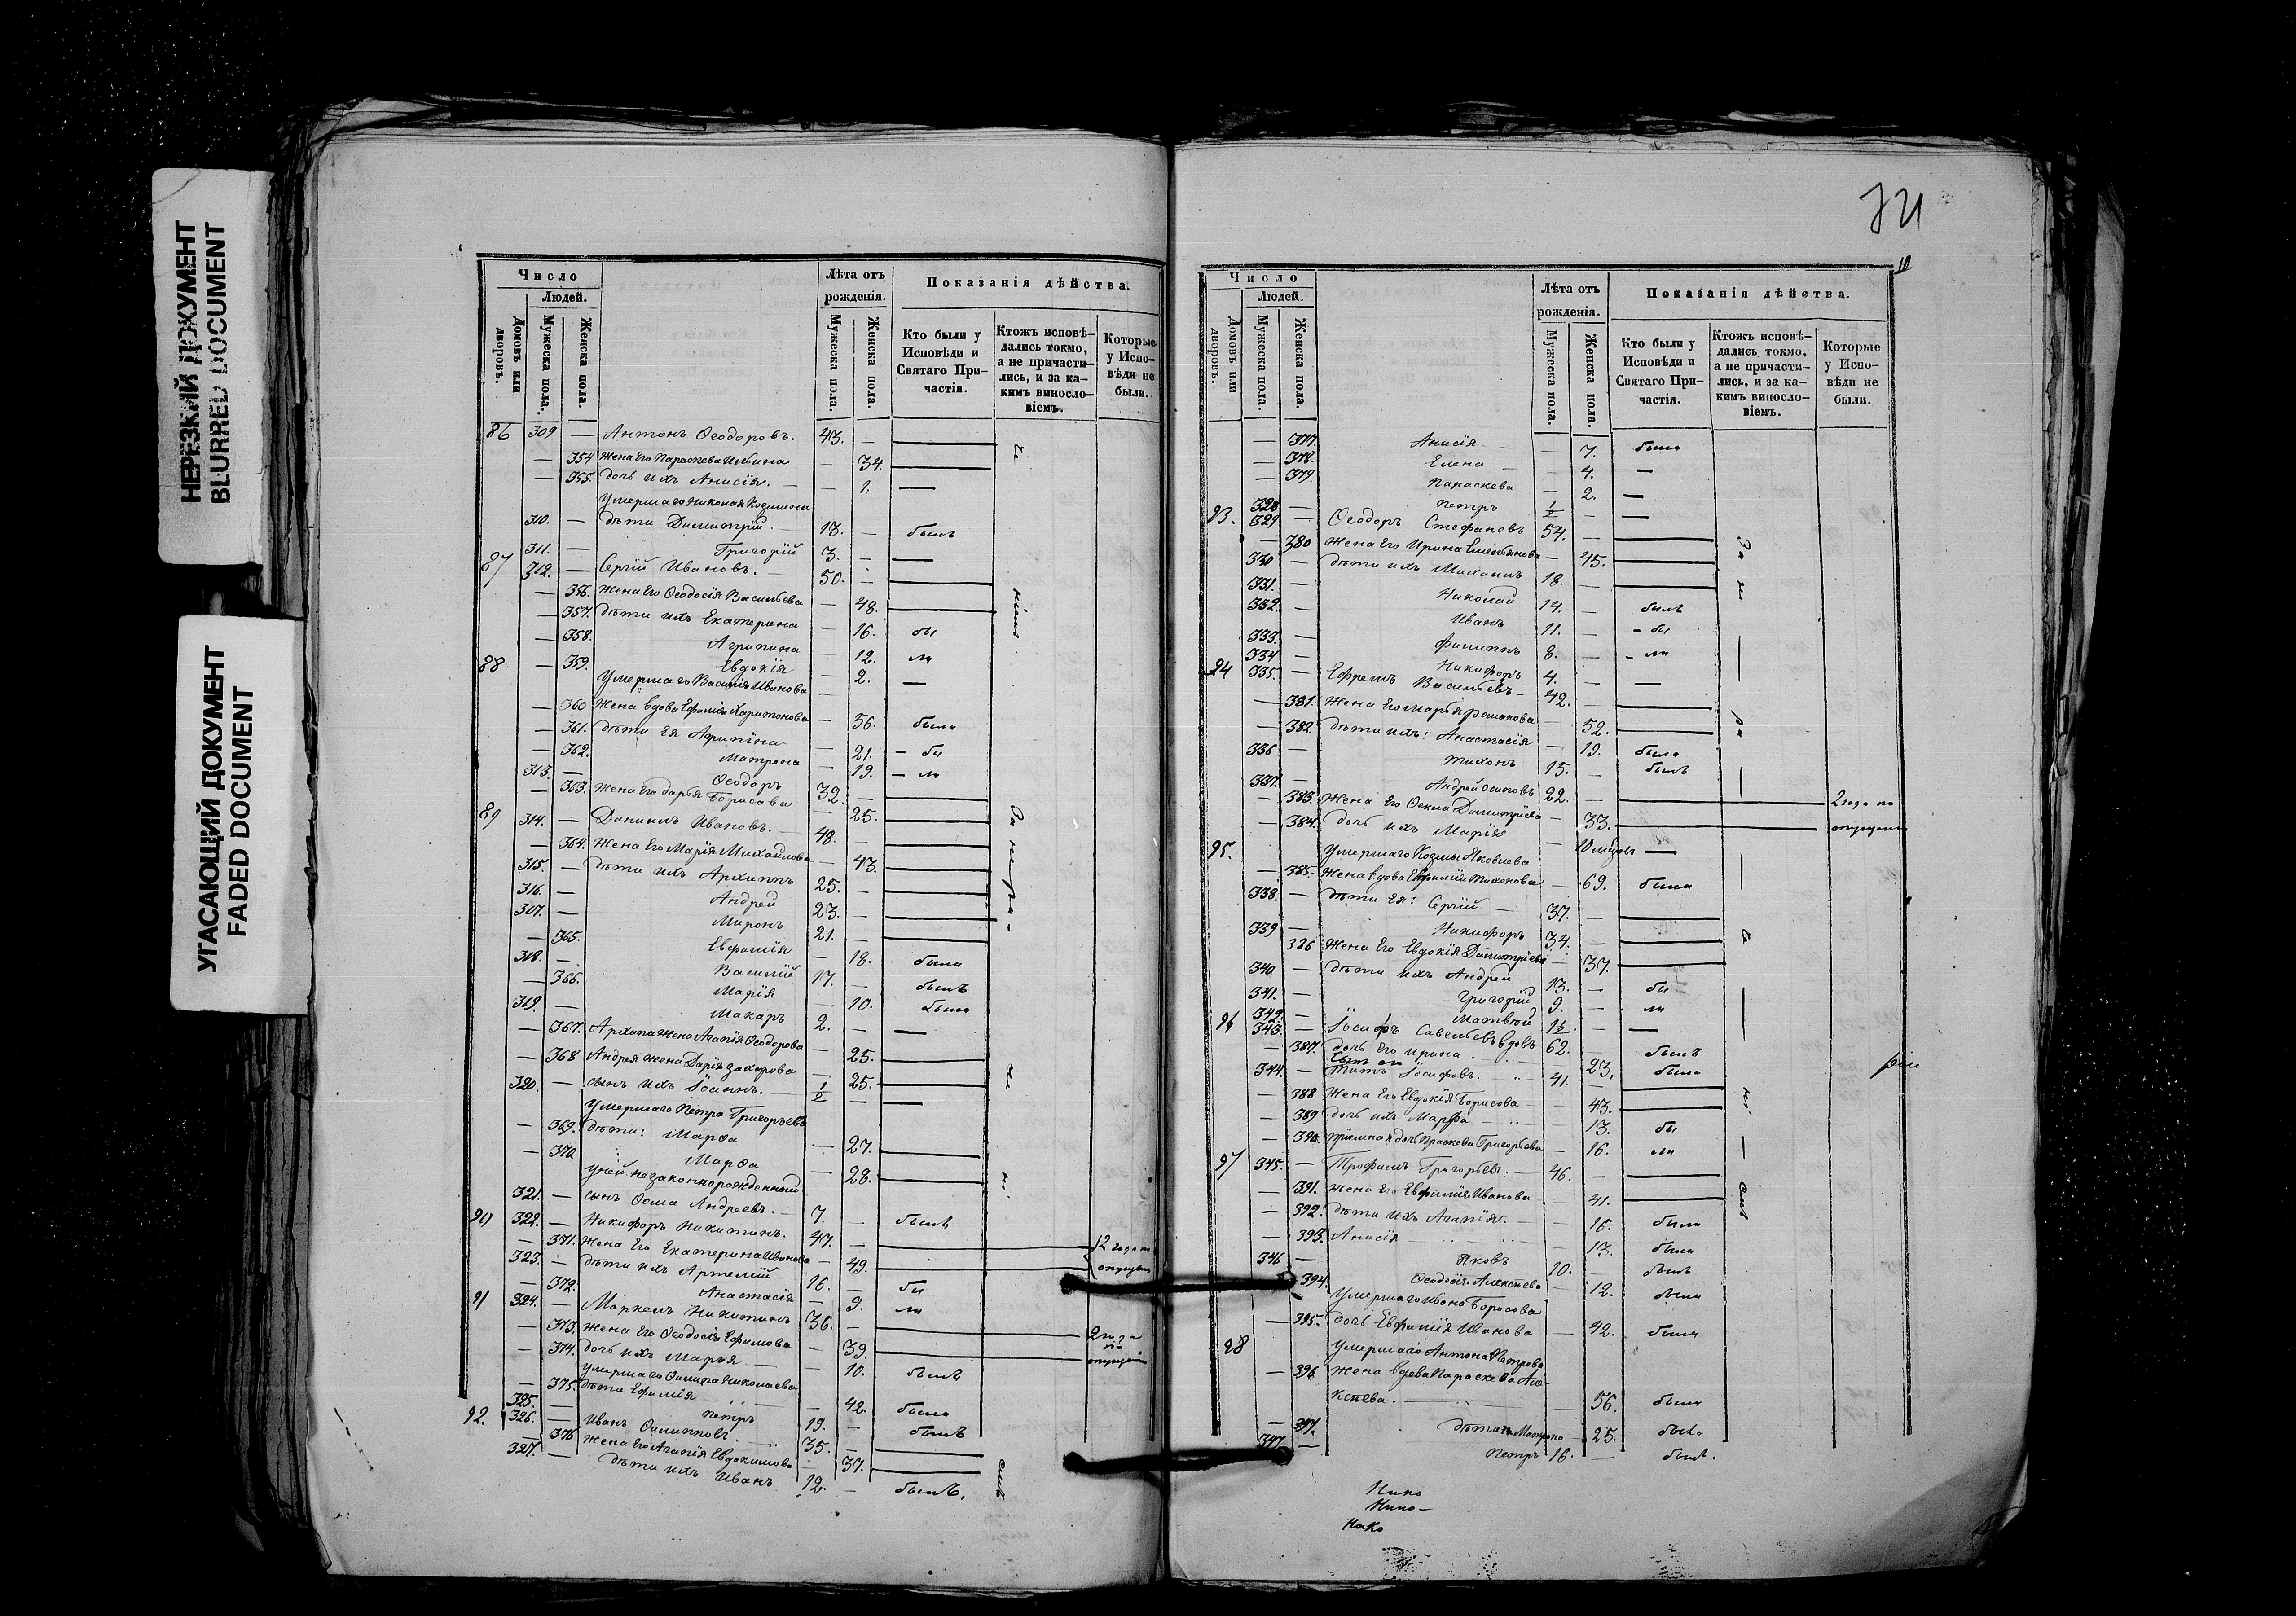 НЕРЕЗКИЙ ДОКУМЕНТ
BLURRED DOCUMENT
УГАСАЮЩИЙ ДОКУМЕНТ
FADED DOCUMENT
Число
Людей.
Домовъ или дворовъ.
Мужеска пола.
Женска пола.
Лѣта отъ рожденія.
Мужеска пола.
Женска пола.
Показанія дѣйства.
Кто были у Исповѣди и Святаго Причастія.
Ктожъ исповѣдались токмо, а не причастились, и за какимъ винословіемъ.
Которые у Исповѣди не были.
86 309 — Антонъ Ѳеодоровъ. 43. —
— 354 Жена Его Параскева Ильина — 34.
— 355. дочь ихъ Анисія. — 1. —
Умершаго Николая Козмина
310. — дѣти Димитрій. — 13. — былъ
311. — Григорій 3. — —
87 312. — Сергій Ивановъ. 50. —
— 356. Жена Его Ѳеодосія Васильева — 48.
— 357. дѣти ихъ Екатерина — 16. бы
— 358. Агрипина — 12. ли
— 359. Евдокія — 2. —
88 Умершаго Василія Иванова
— 360 Жена вдова Ефимія Харитонова — 56. была
— 361. дѣти Ея Агрипина — 21. – бы
— 362. Матрона — 19. – ли
313. — Ѳеодоръ 32. —
— 363. Жена Его Дарья Борисова — 25.
89 314. — Даниилъ Ивановъ. 48. —
— 364. Жена Его Марія Михайлова — 43.
315. — дѣти ихъ Архиппъ 25. —
316. — Андрей 23. —
317. — Миронъ 21. —
— 365. Евфимія — 18. была
318. — Василій 17. — былъ
— 366. Марія — 10. была
319. — Макаръ 2. — —
— 367. Архипа жена Агапія Ѳеодорова — 25.
— 368 Андрея жена Дарія Захарова — 25.
320. — сынъ ихъ Іоаннъ. 1/2 — —
Умершаго Петра Григорьева
— 369. дѣти: Марѳа — 27.
— 370 Марѳа — 28.
у ней незаконнорожденный
321. — сынъ Ѳома Андреевъ. 7. — былъ
90 322. — Никифоръ Никитинъ. 47. —
— 371. Жена Его Екатерина Иванова — 49.
2 года по опущенію
323. — дѣти ихъ Артемій 16. — бы
— 372. Анастасія — 9. ли
91 324. — Маркелъ Никитинъ 36. —
— 373. Жена Его Ѳеодосія Ефимова — 39.
2 года по опущенію
— 374. дочь ихъ Марья — 10. былъ
Умершаго Филипа Николаева
— 375. дѣти Ефимія — 42. была
325. — Петръ 19. — былъ
92. 326. — Иванъ Филипповъ 35. —
— 376 Жена Его Агапія Евдокимова — 37.
327. — дѣти ихъ Иванъ 12. — былъ.
10
Число
Людей.
Домовъ или дворовъ.
Мужеска пола.
Женска пола.
Лѣта отъ рожденія.
Мужеска пола.
Женска пола.
Показанія дѣйства.
Кто были у Исповѣди и Святаго Причастія.
Ктожъ исповѣдались токмо, а не причастились, и за какимъ винословіемъ.
Которые у Исповѣди не были.
— 377. Анисія — — 7. была
— 378. Елена — — 4. —
— 379. Параскева — 2. —
328 — Петръ 1/2 — —
93. 329 — Ѳеодоръ Стефановъ 54. —
— 380 Жена Его Ирина Емельянова — 45.
330 — дѣти ихъ Михаилъ 18. —
331. — Николай 14. — былъ
332. — Иванъ 11. — – бы
333. — Филиппъ 8. — – ли
334 — Никифоръ 4. — —
94 335. — Ефремъ Васильевъ — 42. —
— 381. Жена Его Марья Романова — 52.
— 382. дѣти ихъ: Анастасія — 19. была
336 — Тихонъ 15. — былъ
337. — Андрей Осиповъ 22. —
— 383. Жена Его Ѳекла Димитріева — 33.
2 года по опущенію
— 384. дочь ихъ Марія — 10 мѣцовъ —
95. Умершаго Козмы Яковлева
— 385. Жена вдова Евфимія Тихонова — 69. была
338. — дѣти Ея: Сергій — 37. —
339 — Никифоръ 34. —
326 Жена Его Евдокія Димитріева — 37.
340 — дѣти ихъ Андрей 13. — бы
341. — Григорій 9. — ли
342. — Матвѣй 1 1/2. — —
96 343. — Іосифъ Савельевъ вдовъ 62. былъ
— 387. дочь Его Ирина. 23. была
344. — Титъ Іосифовъ. 41. —
— 388 Жена Его Евдокія Борисова — 43.
— 389 дочь ихъ Марѳа — 13. бы
— 390. пріемная дочь Праскева Григорьева — 16. ли
97 345. — Трофимъ Григорьевъ. — 46. —
— 391. Жена Его Евфимія Иванова — 41.
— 392. дѣти ихъ Агапія. — — 16. была
— 393. Анисія — 13. была
346 — Яковъ 10. — былъ
— 394. Ѳеодосія Алексѣева — 12. была
Умершаго Ивана Борисова
— 395. дочь Евфимія Иванова — 42. была
98 Умершаго Антона Петрова
— 396 жена вдова Параскева Алексѣева. — 56. была
— 397. дѣти ихъ Матрона — 25. была
347 — Петръ 16. — былъ.
Нико
Нико–
Нико